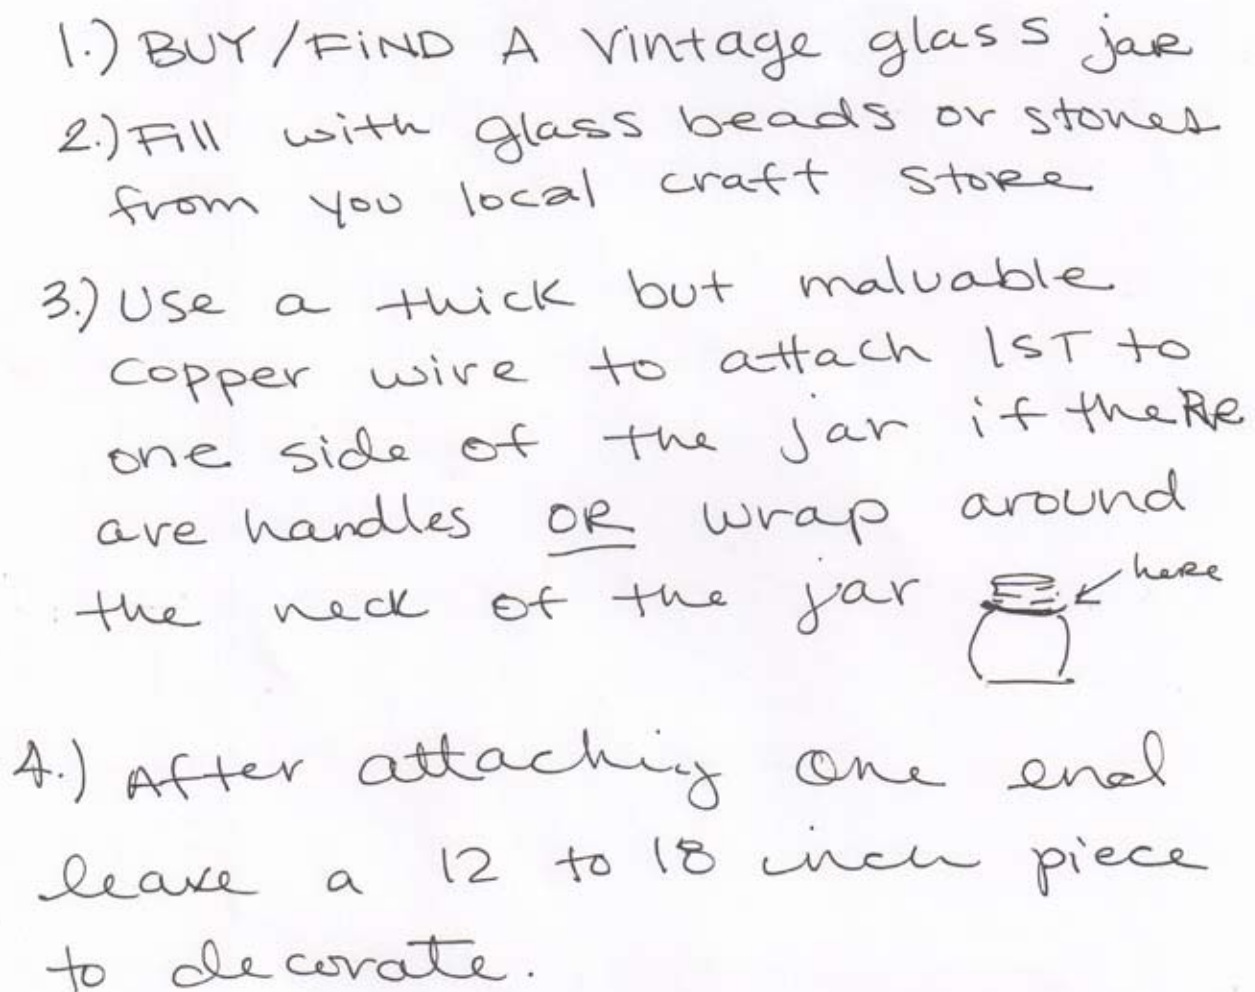 1.) BUY/FIND A vintage glass jar
2.) Fill with glass beads or stones
from you local craft store
3.) Use a thick but maluable
copper wire to attach 1ST to
one side of the jar if there
are handles OR wrap around
the neck of the jar
here
4.) After attaching one end
leave a 12 to 18 inch piece
to decorate.